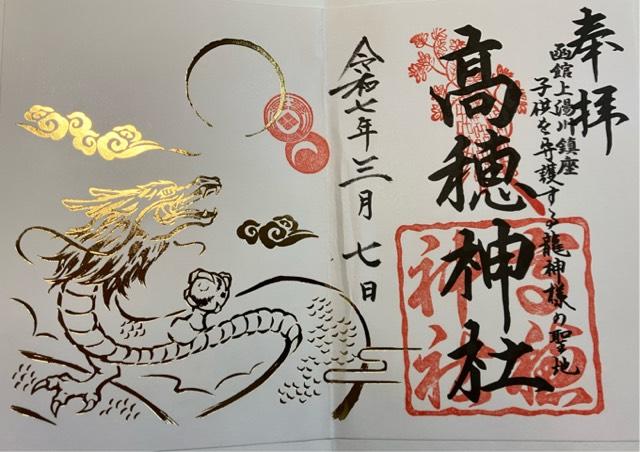 奉拝
函館上湯川鎮座
子供を守護する龍神様の聖地
高穂神社
高穂
神社
令和七年三月七日